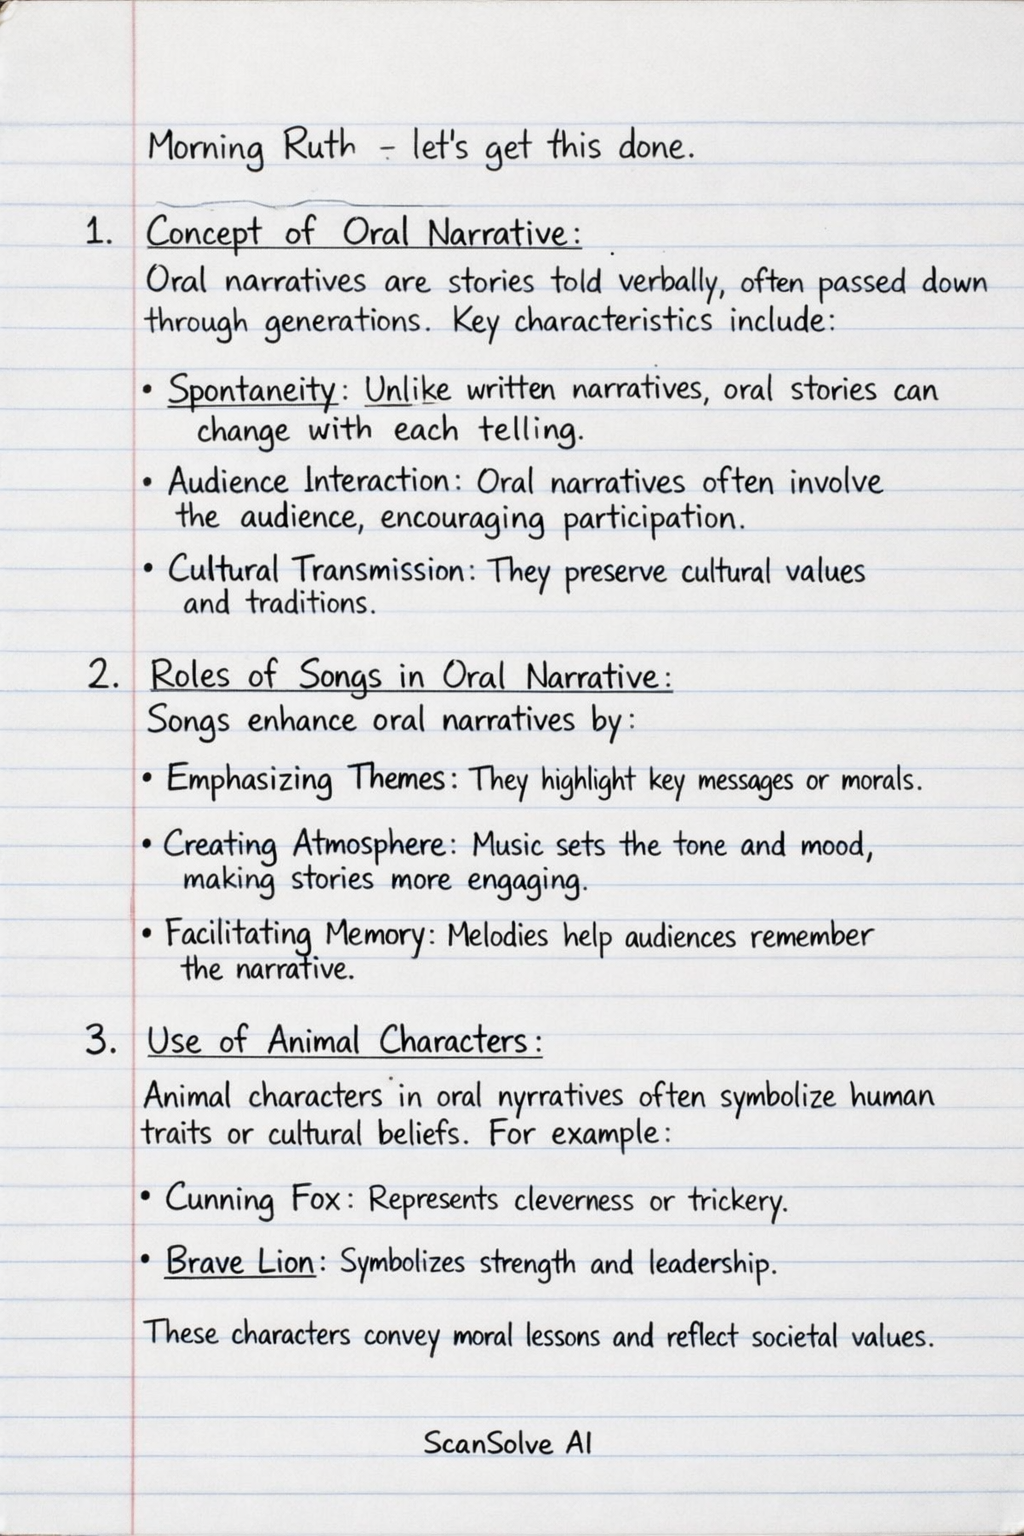 Morning Ruth - let's get this done.
1. Concept of Oral Narrative:
Oral narratives are stories told verbally, often passed down
through generations. Key characteristics include:
• Spontaneity: Unlike written narratives, oral stories can
change with each telling.
• Audience Interaction: Oral narratives often involve
the audience, encouraging participation.
• Cultural Transmission: They preserve cultural values
and traditions.
2. Roles of Songs in Oral Narrative:
Songs enhance oral narratives by:
• Emphasizing Themes: They highlight key messages or morals.
• Creating Atmosphere: Music sets the tone and mood,
making stories more engaging.
• Facilitating Memory: Melodies help audiences remember
the narrative.
3. Use of Animal Characters:
Animal characters in oral nyrratives often symbolize human
traits or cultural beliefs. For example:
• Cunning Fox: Represents cleverness or trickery.
• Brave Lion: Symbolizes strength and leadership.
These characters convey moral lessons and reflect societal values.
ScanSolve AI